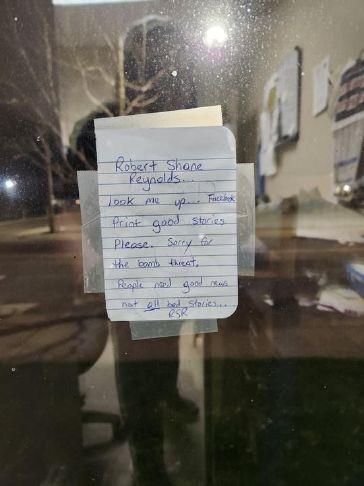 Robert Shane
Reynolds...
Look me up... Facebook
Print good stories
Please. Sorry for
the bomb threat.
People need good news
not all bad stories...
RSR